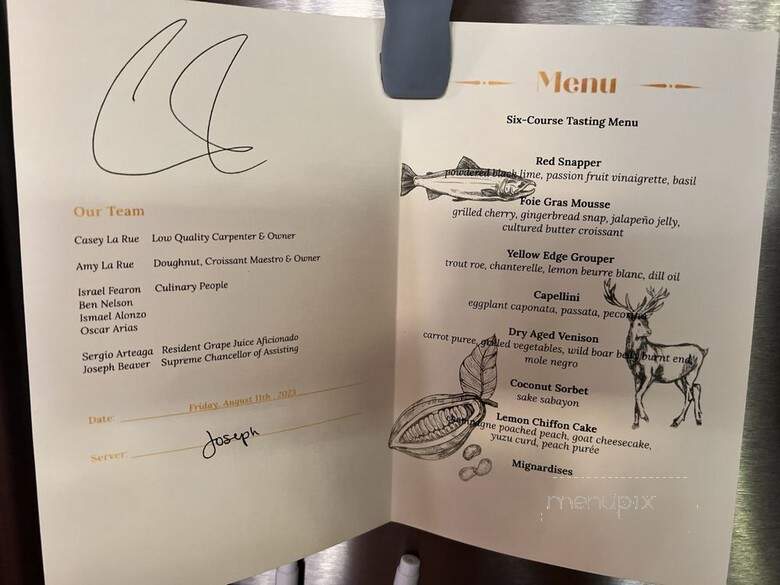 Our Team
Casey La Rue Low Quality Carpenter & Owner
Amy La Rue Doughnut, Croissant Maestro & Owner
Israel Fearon Culinary People
Ben Nelson
Ismael Alonzo
Oscar Arias
Sergio Arteaga Resident Grape Juice Aficionado
Joseph Beaver Supreme Chancellor of Assisting
Date: Friday, August 11th, 2023
Server: Joseph
Menu
Six-Course Tasting Menu
Red Snapper
powdered black lime, passion fruit vinaigrette, basil
Foie Gras Mousse
grilled cherry, gingerbread snap, jalapeño jelly,
cultured butter croissant
Yellow Edge Grouper
trout roe, chanterelle, lemon beurre blanc, dill oil
Capellini
eggplant caponata, passata, pecorino
Dry Aged Venison
carrot puree, grilled vegetables, wild boar belly burnt end,
mole negro
Coconut Sorbet
sake sabayon
Lemon Chiffon Cake
champagne poached peach, goat cheesecake,
yuzu curd, peach purée
Mignardises
menupix